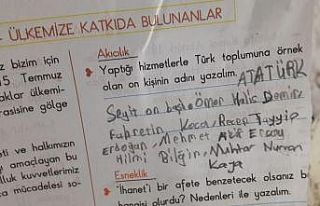 ÜLKEMİZE KATKIDA BULUNANLAR
Akıcılık
Yaptığı hizmetlerle Türk toplumuna örnek
olan on kişinin adını yazalım. ATATÜRK
Seyit on başı Ömer Halis Demir
Fahrettin Koca, Recep Tayyip
Erdoğan, Mehmet Akif Ersoy
Hilmi Bilgin, Muhtar Numan
Kaya
Esneklik
"İhanet'i bir afete benzetecek olsanız b
hangisi olurdu? Nedenleri ile yazalım.
bizim için
15 Temmuz
aklar ülkemi-
rasisine gölge
sti ve halkımızın
amaçlayan bu
lluk kuvvetlerimiz
ca mücadelesi so-